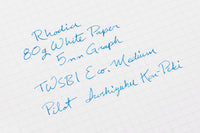 Rhodia
80g White Paper
5mm Graph
TWSBI Eco, Medium
Pilot Iroshizuku Kon-Peki